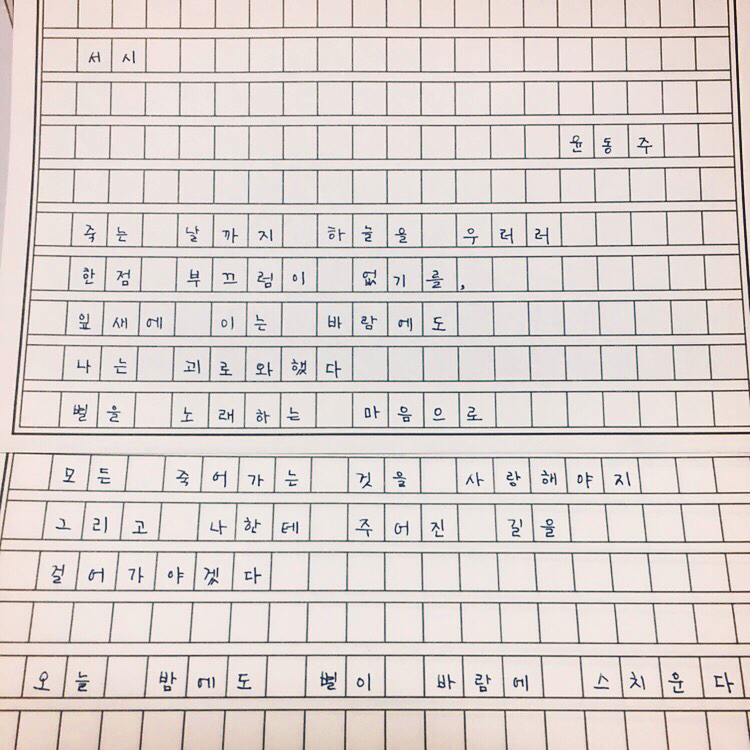 서시
윤동주
죽는 날까지 하늘을 우러러
한점 부끄럼이 없기를,
잎새에 이는 바람에도
나는 괴로와했다
별을 노래하는 마음으로
모든 죽어가는 것을 사랑해야지
그리고 나한테 주어진 길을
걸어가야겠다
오늘 밤에도 별이 바람에 스치운다